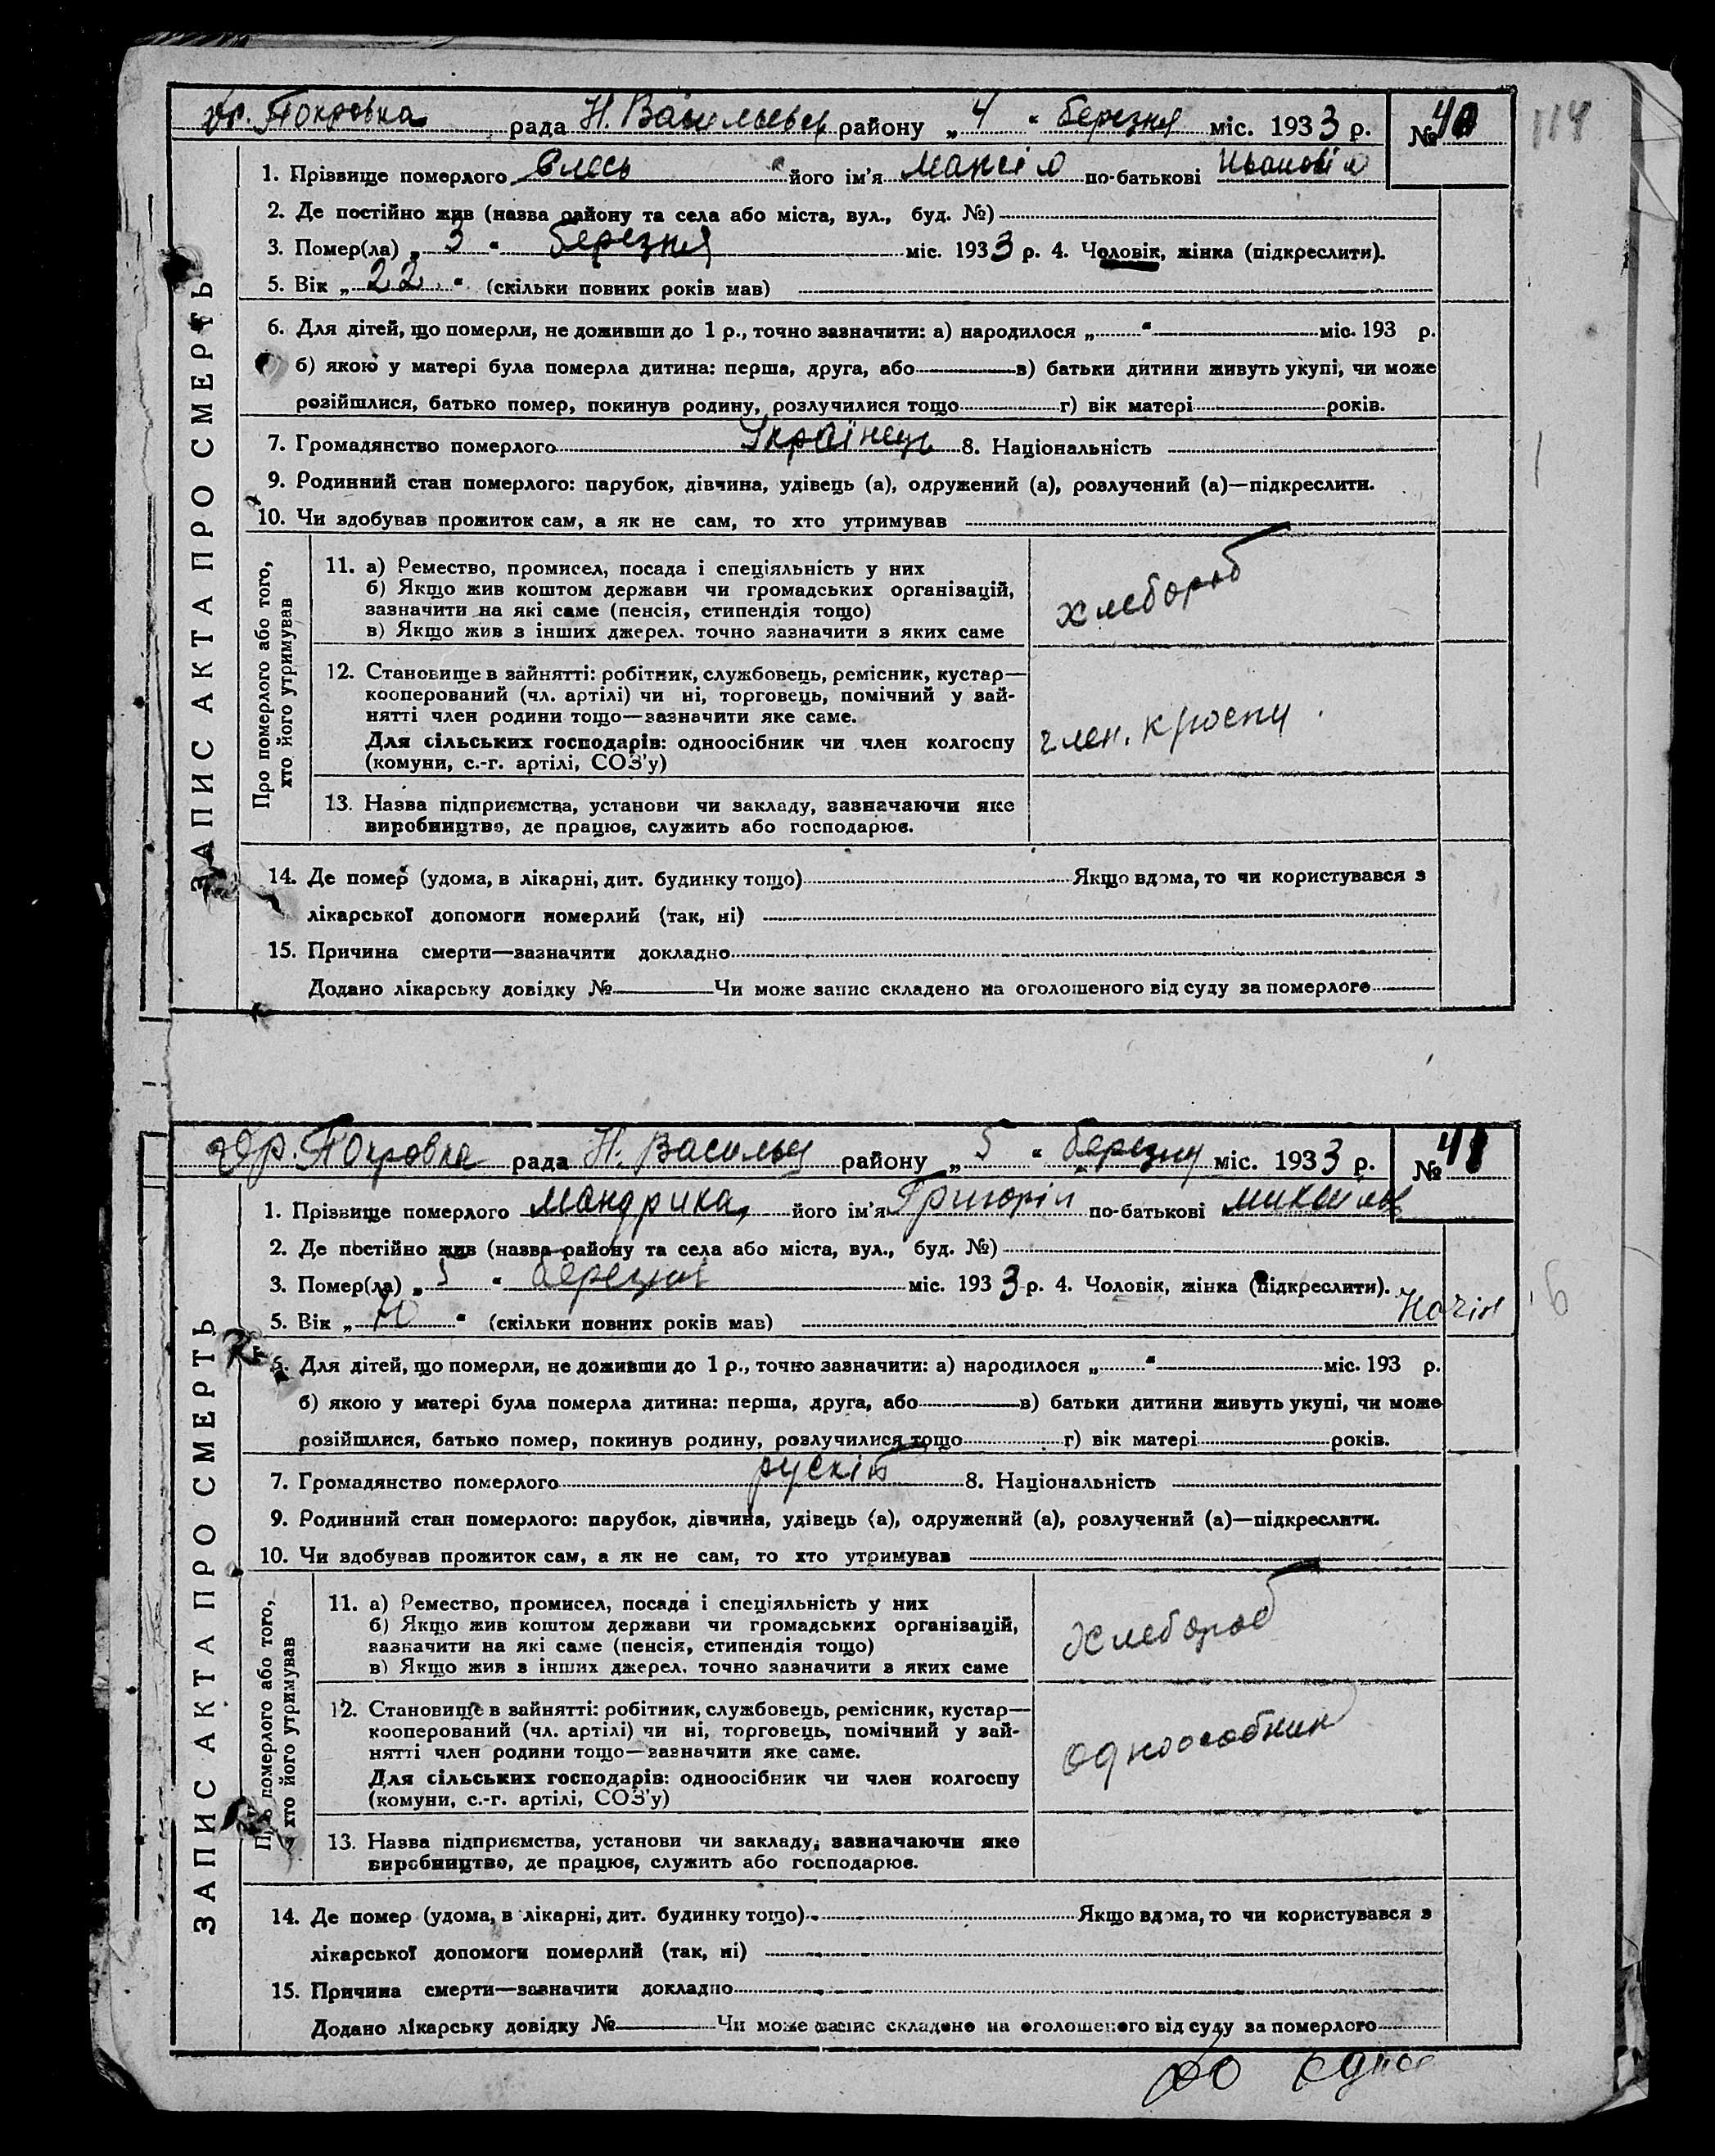 Покровка рада Н. Васильев району „ 4 “ березня міс. 1933 р. № 40
114
1. Прізвище померлого його ім'я по-батькові
2. Де постійно жив (назва району та села або міста, вул., буд. №)
3. Помер(ла) „ 3 “ березня міс. 1933 р. 4. Чоловік, жінка (підкреслити).
5. Вік „ 22 “ (скільки повних років мав)
6. Для дітей, що померли, не доживши до 1 р., точно зазначити: а) народилося „ “ міс. 193 р.
б) якою у матері була померла дитина: перша, друга, або в) батьки дитини живуть укупі, чи може
розійшлися, батько помер, покинув родину, розлучилися тощо г) вік матері років.
7. Громадянство померлого Українець 8. Національність
9. Родинний стан померлого: парубок, дівчина, удівець (а), одружений (а), розлучений (а)—підкреслити.
10. Чи здобував прожиток сам, а як не сам, то хто утримував
ЗАПИС АКТА ПРО СМЕРТЬ
Про померлого або того,
хто його утримував
11. а) Ремество, промисел, посада і спеціяльність у них
б) Якщо жив коштом держави чи громадських організацій,
зазначити на які саме (пенсія, стипендія тощо)
в) Якщо жив з інших джерел. точно зазначити з яких саме
хлебороб
12. Становище в зайнятті: робітник, службовець, ремісник, кустар—
кооперований (чл. артілі) чи ні, торговець, помічний у зай-
нятті член родини тощо—зазначити яке саме.
Для сільських господарів: одноосібник чи член колгоспу
(комуни, с.-г. артілі, СОЗ'у)
член.
13. Назва підприємства, установи чи закладу, зазначаючи яке
виробництво, де працює, служить або господарює.
14. Де помер (удома, в лікарні, дит. будинку тощо) Якщо вдома, то чи користувався з
лікарської допомоги померлий (так, ні)
15. Причина смерти—зазначити докладно
Додано лікарську довідку № Чи може запис складено на оголошеного від суду за померлого
Покровка рада Н. Василь району „ 5 “ березня міс. 1933 р. № 41
1. Прізвище померлого Мандрика, його ім'я Григорій по-батькові
2. Де постійно жив (назва району та села або міста, вул., буд. №)
3. Помер(ла) „ 5 “ березня міс. 1933 р. 4. Чоловік, жінка (підкреслити).
5. Вік „ 70 “ (скільки повних років мав)
6. Для дітей, що померли, не доживши до 1 р., точно зазначити: а) народилося „ “ міс. 193 р.
б) якою у матері була померла дитина: перша, друга, або в) батьки дитини живуть укупі, чи може
розійшлися, батько помер, покинув родину, розлучилися тощо г) вік матері років.
7. Громадянство померлого 8. Національність
9. Родинний стан померлого: парубок, дівчина, удівець (а), одружений (а), розлучений (а)—підкреслити.
10. Чи здобував прожиток сам, а як не сам, то хто утримував
ЗАПИС АКТА ПРО СМЕРТЬ
Про померлого або того,
хто його утримував
11. а) Ремество, промисел, посада і спеціяльність у них
б) Якщо жив коштом держави чи громадських організацій,
зазначити на які саме (пенсія, стипендія тощо)
в) Якщо жив з інших джерел. точно зазначити з яких саме
Хлебороб
12. Становище в зайнятті: робітник, службовець, ремісник, кустар—
кооперований (чл. артілі) чи ні, торговець, помічний у зай-
нятті член родини тощо—зазначити яке саме.
Для сільських господарів: одноосібник чи член колгоспу
(комуни, с.-г. артілі, СОЗ'у)
одноособник
13. Назва підприємства, установи чи закладу, зазначаючи яке
виробництво, де працює, служить або господарює.
14. Де помер (удома, в лікарні, дит. будинку тощо) Якщо вдома, то чи користувався з
лікарської допомоги померлий (так, ні)
15. Причина смерти—зазначити докладно
Додано лікарську довідку № Чи може запис складено на оголошеного від суду за померлого